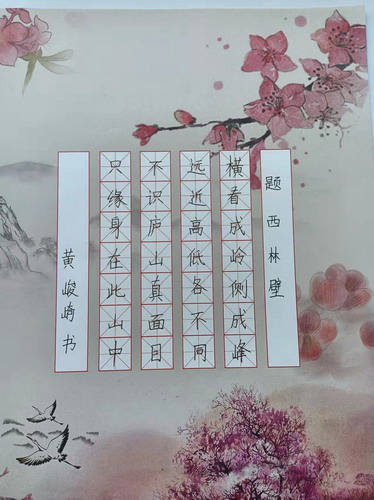 题西林壁
横看成岭侧成峰
远近高低各不同
不识庐山真面目
只缘身在此山中
黄峻崎书